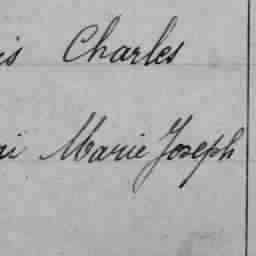 is Charles
ai Marie Joseph